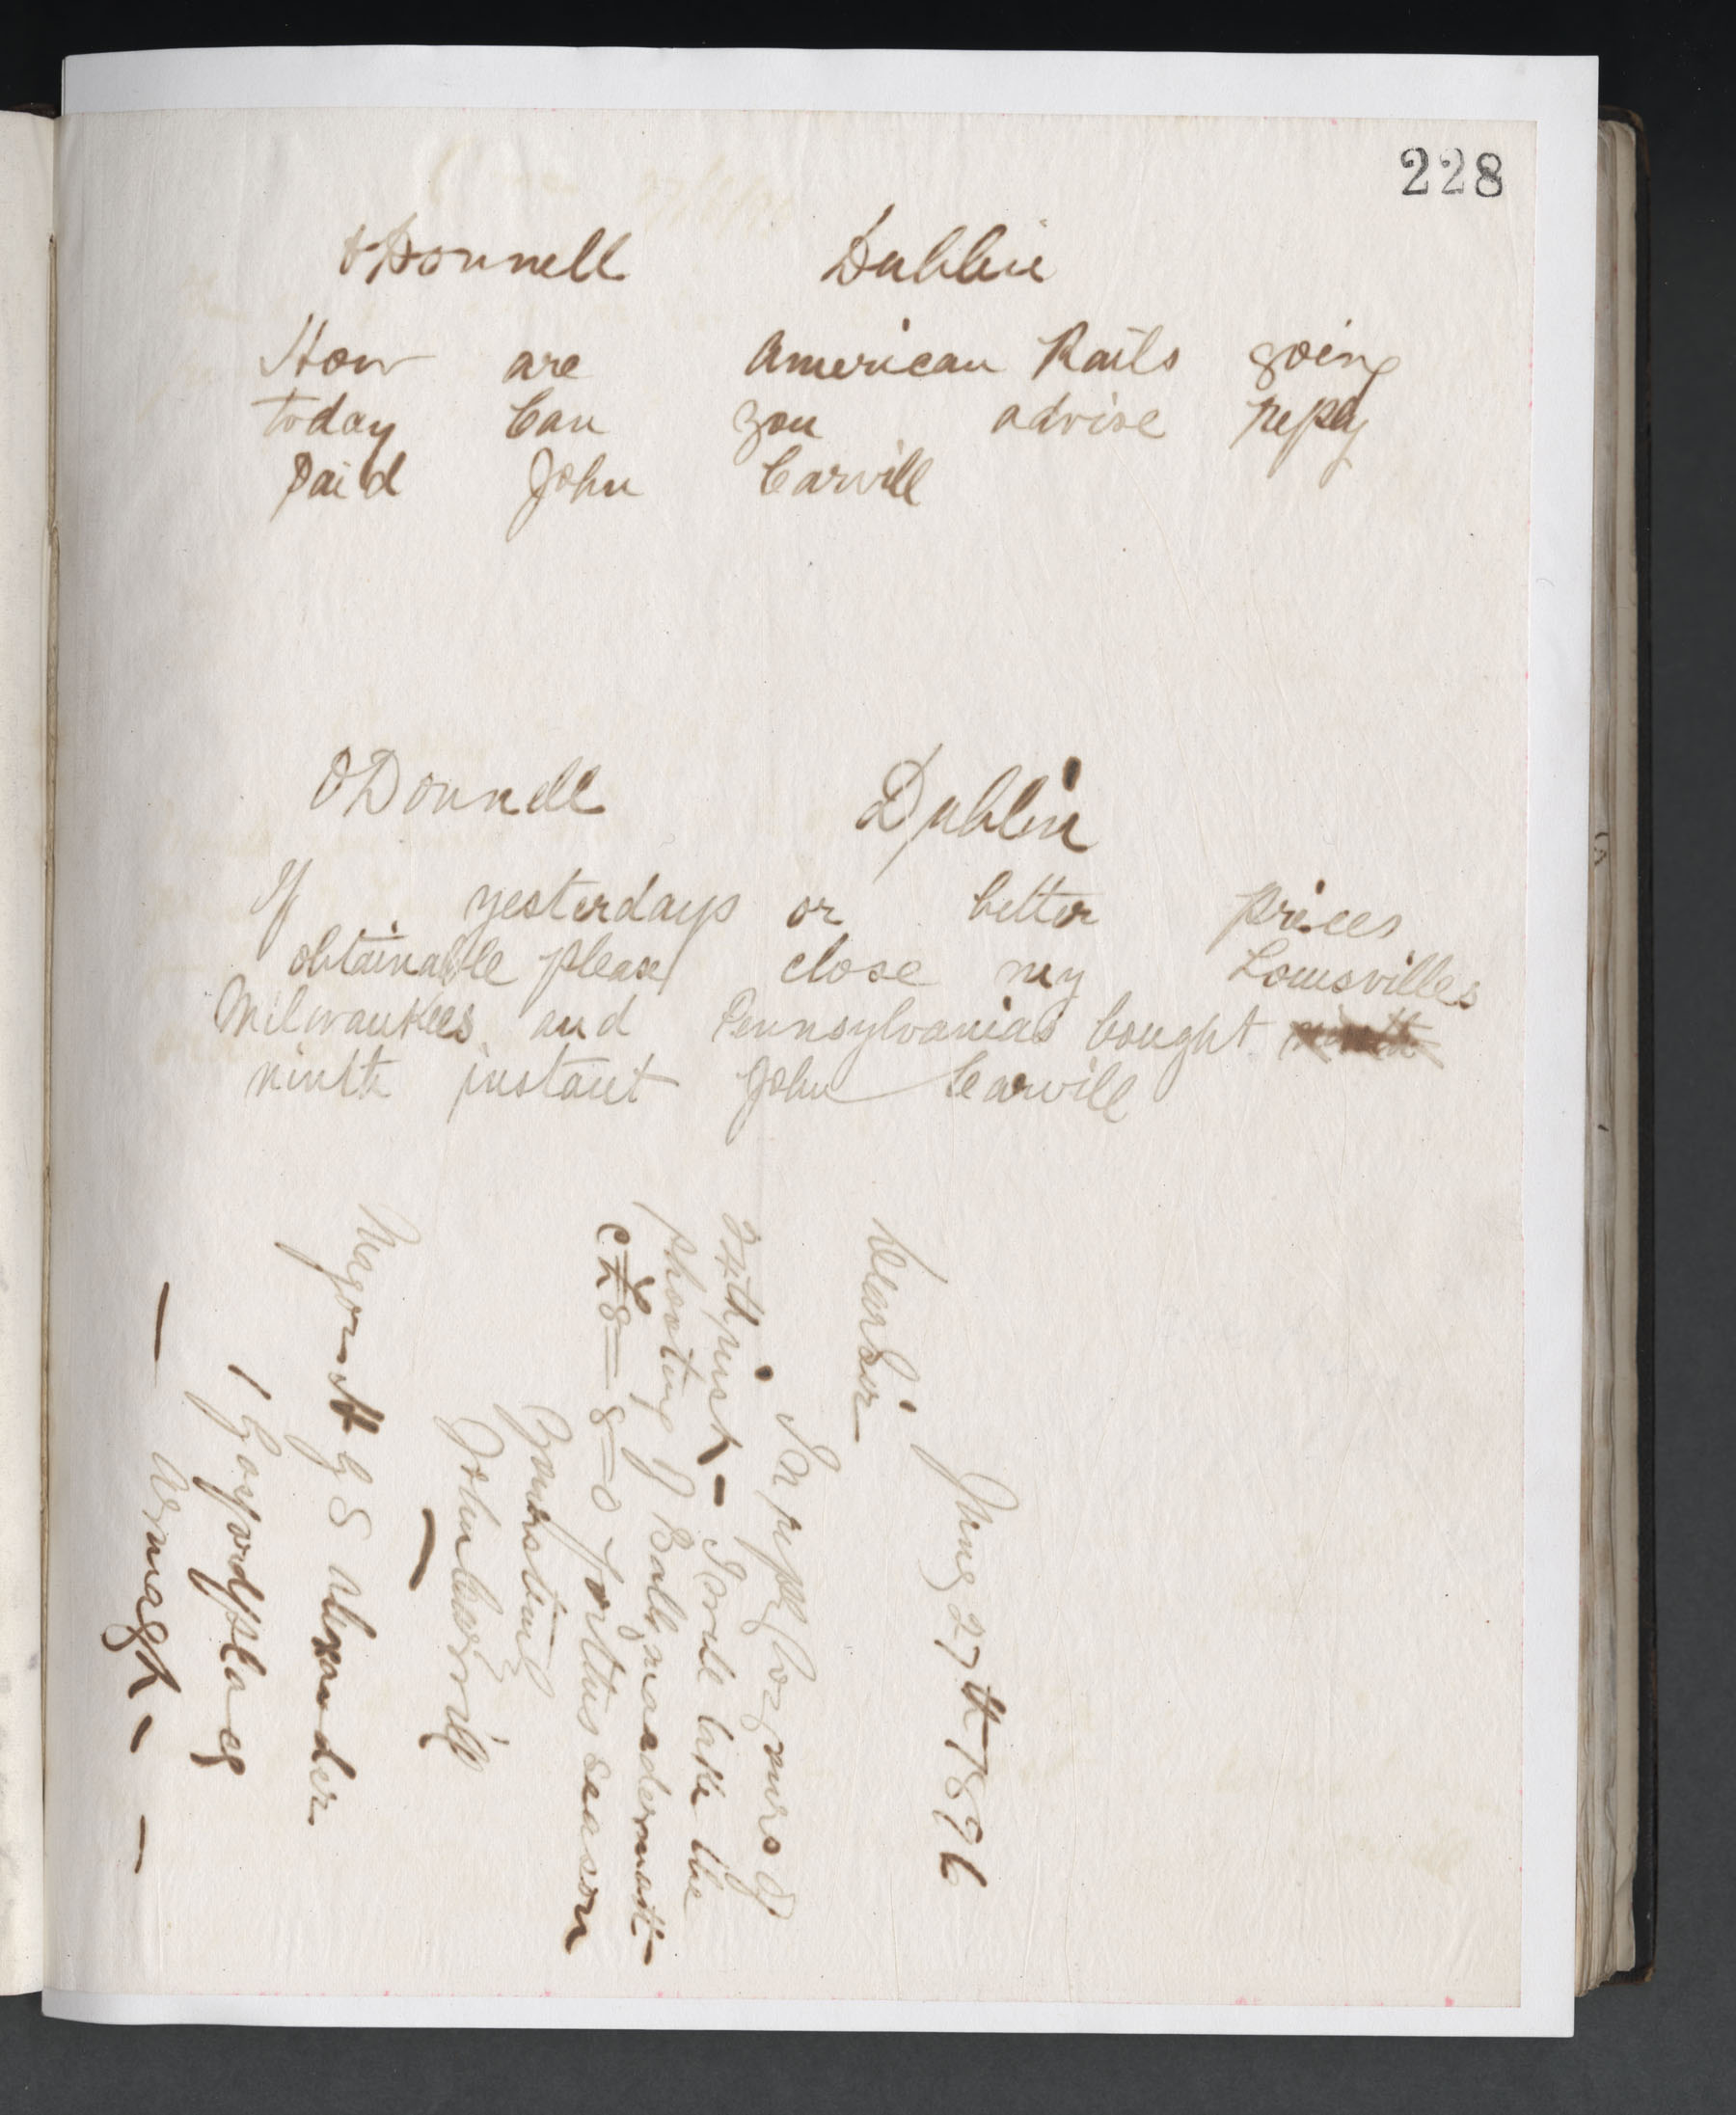 228
O'Donnell Dublin
How are American Rails going
today Can you advise reply
paid John Carvill
ODonnell Dublin
If yesterdays or better prices
obtainable please close my Louisvilles
Milwaukees and Pennsylvanias bought
ninth instant John Carvill
June 27th 1896
Dear Sir
In reply to yours of
inst - I will take the
shooting of Ballymacdermott -
@ £8 = 8 = 0 for this season
Yours truly
John Carvill
Major H G S Alexander
1 Gosford place
Armagh -